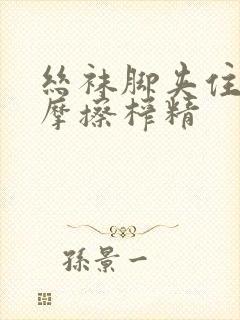 丝袜脚夹住
摩擦榨精
孫景一